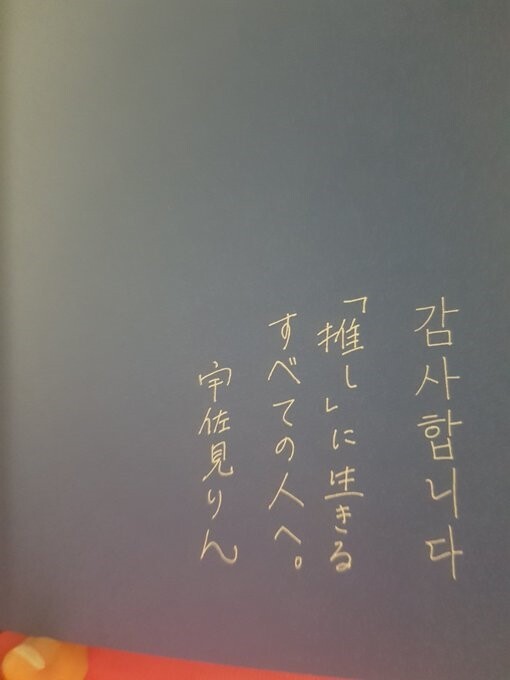 감사합니다
「推し」に生きる
すべての人へ。
宇佐見りん